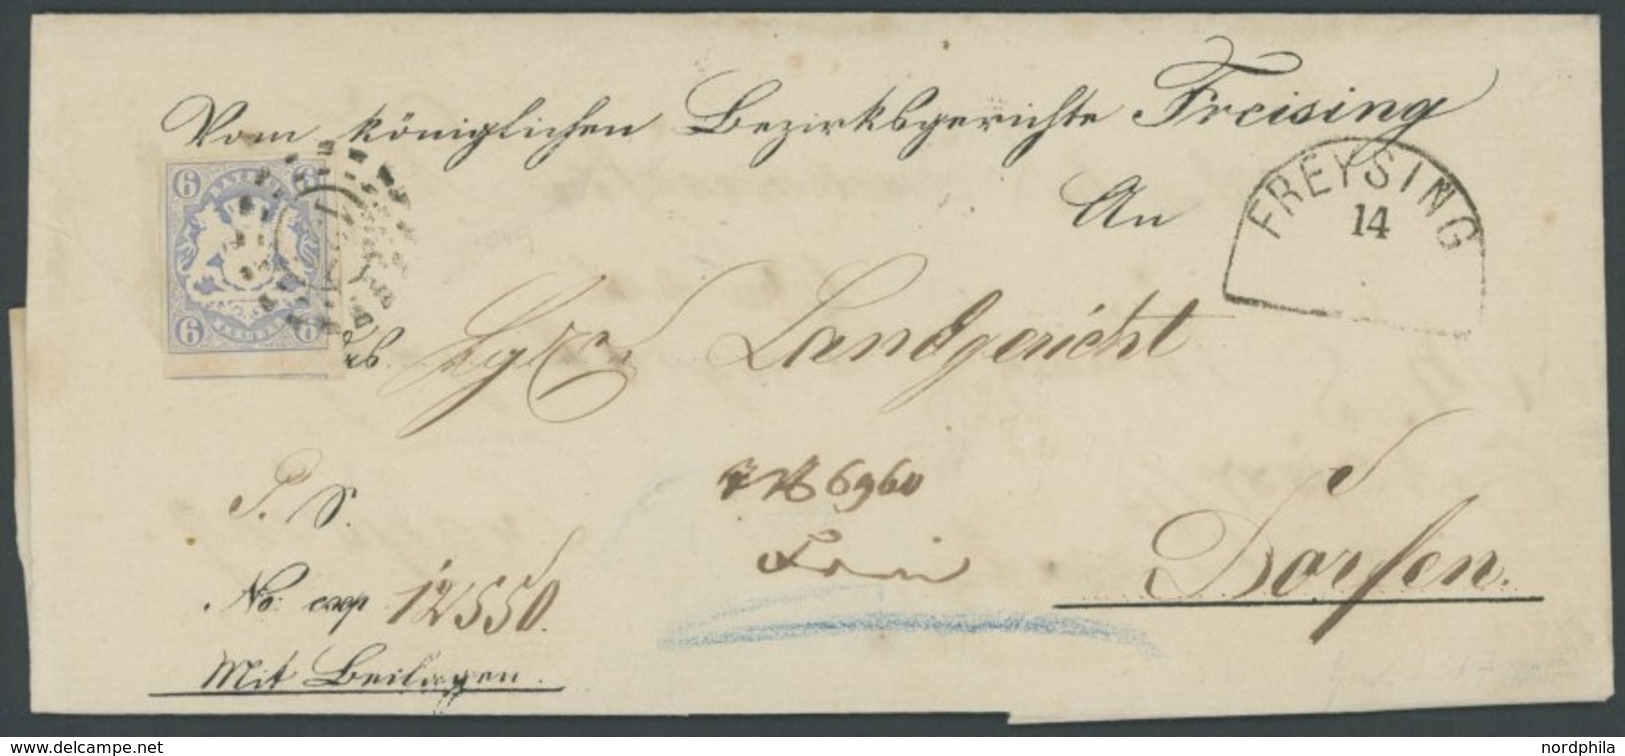 Vom königlichen Bezirksgerichte Freising
An
FREYSING
14
6 BAYERN 6
6 6
Landgericht
Dorfen.
P. S.
6960
No: exp 12550.
Mit Beilagen.
www.delcampe.net
nordphila